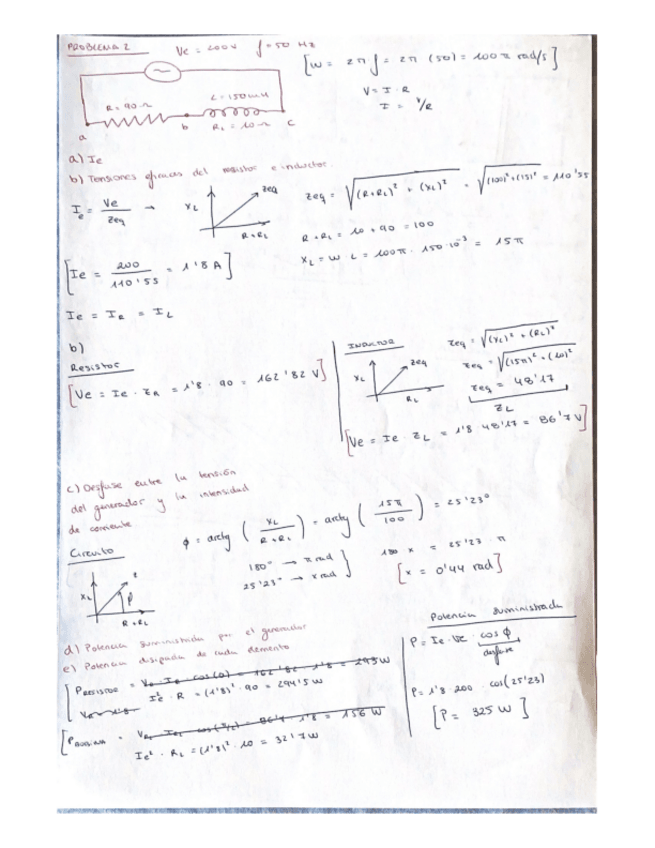 PROBLEMA 2
Ve = 200V f = 50 Hz
[W = 2π f = 2π (50) = 100π rad/s]
V = I · R
I = V/R
R = 90 Ω
L = 150mH
a
b
c
RL = 10 Ω
a) Ie
b) Tensiones eficaces del resistor e inductor.
Ie = Ve / Zeq →
XL
Zeq
R+RL
Zeq = √((R+RL)² + (XL)²) = √((100)² + (15)²) = 110'55
R + RL = 10 + 90 = 100
XL = W · L = 100π · 150·10⁻³ = 15π
[Ie = 200 / 110'55 = 1'8 A]
Ie = IR = IL
b)
Resistor
[Ve = Ie · ZR = 1'8 · 90 = 162'82 V]
Inductor
XL
Zeq
RL
Zeq = √((XL)² + (RL)²)
Zeq = √((15π)² + (10)²)
Zeq = 48'17
ZL
[Ve = Ie · ZL = 1'8 · 48'17 = 86'7 V]
c) Desfase entre la tensión
del generador y la intensidad
de corriente
Circuito
XL
Z
φ
R+RL
φ = arctg (XL / R+RL) = arctg (15π / 100) = 25'23°
180° → π rad
25'23° → x rad
180 x = 25'23 · π
[x = 0'44 rad]
d) Potencia suministrada por el generador
e) Potencia disipada de cada elemento
[PRESISTOR = Ve · Ie · cos(0) = 162'82 · 1'8 = 293W
Ie² · R = (1'8)² · 90 = 294'5 W
= 86'7 · 1'8 = 156 W
Ie² · RL = (1'8)² · 10 = 32'7 W
Potencia suministrada
P = Ie · Ve · cos φ
desfase
P = 1'8 · 200 · cos(25'23)
[P = 325 W]